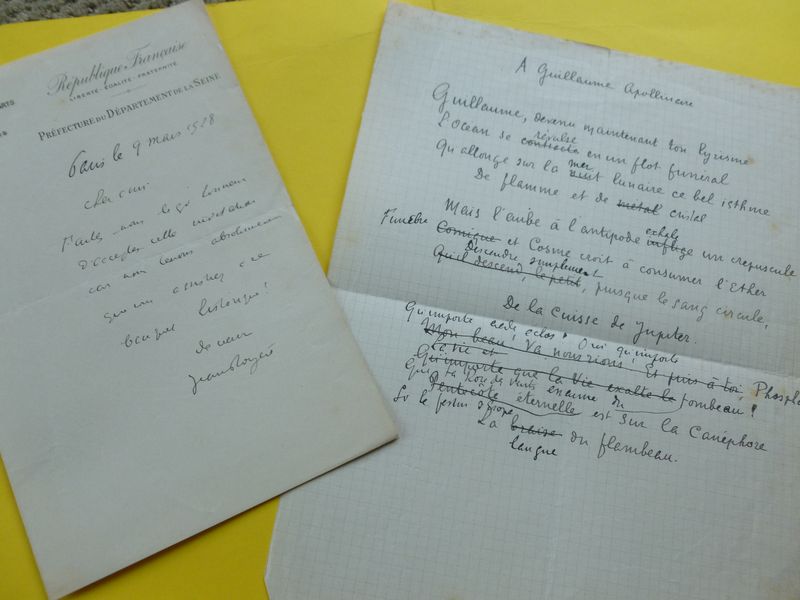 ARTS
République Française
LIBERTÉ - ÉGALITÉ - FRATERNITÉ
PRÉFECTURE DU DÉPARTEMENT DE LA SEINE
Paris le 9 mars 1928
cher ami
Faites nous le gd honneur
d'accepter cette invitation
car nous tenons absolument
que vous assistiez à ce
banquet historique!
de cœur
A Guillaume Apollinaire
Guillaume, devenu maintenant ton lyrisme
révulse
L'Ocean se contracte en un flot funéral
mer
Qu allonge sur la nuit lunaire ce bel isthme
De flamme et de métal cristal
Mais l'aube à l'antipode inflige un crepuscule
Funèbre Comique et Cosme croit à consumer l'Ether
Descendre simplement
Qu'il descend, le petit, puisque le sang circule,
De la Cuisse de Jupiter.
Qu'importe éclos! Oui qu'importe
Mon beau! Va nous rions! et puis à toi, Phospho
La vie et
Qu'importe que la Vie exalte le tombeau!
Que la Rose des vents
Pentecôte éternelle est sur la Canéphore
La braise du flambeau.
langue